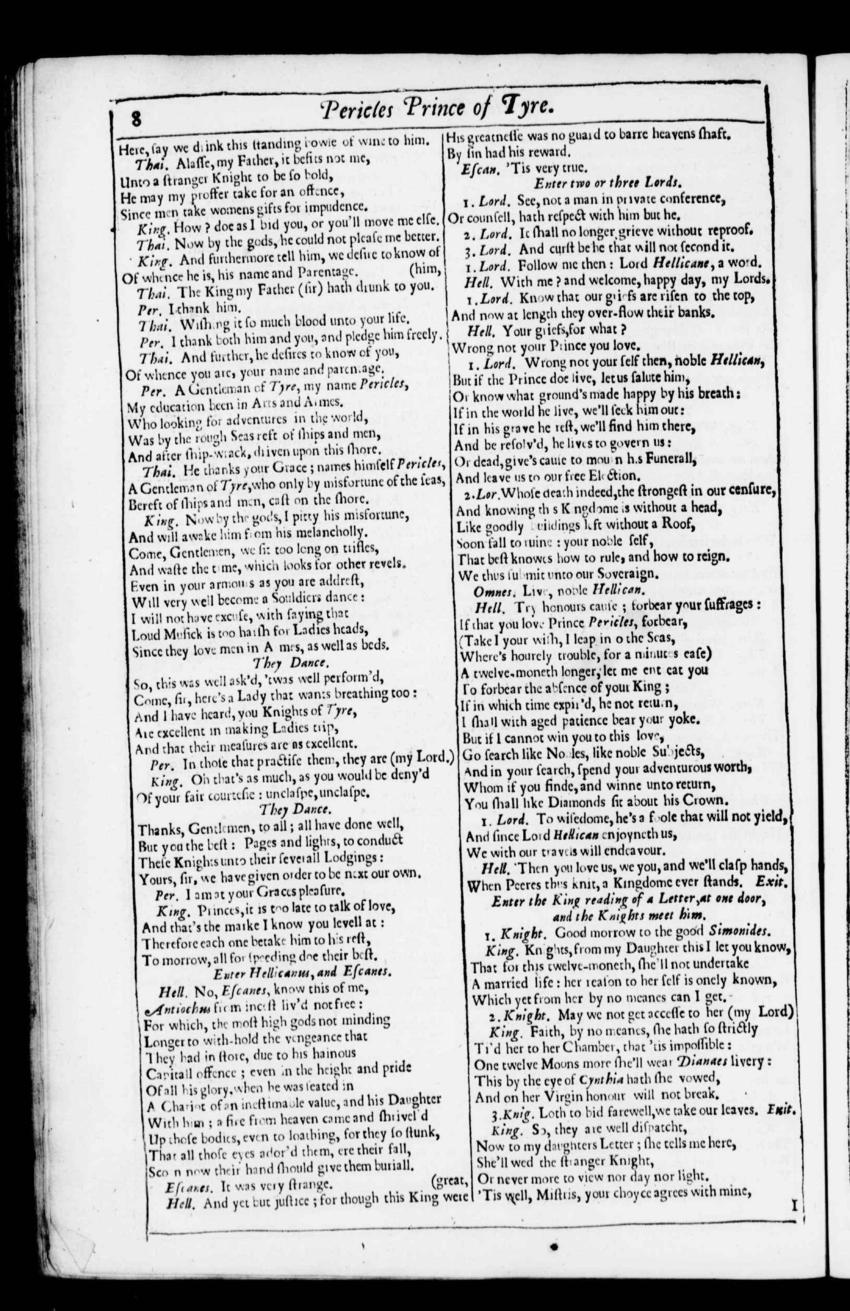 8
Pericles Prince of Tyre.
Here, ſay we drink this ſtanding bowle of wine to him.
Thai. Alaſſe, my Father, it befits not me,
Unto a ſtranger Knight to be ſo bold,
He may my proffer take for an offence,
Since men take womens gifts for impudence.
King. How ? doe as I bid you, or you'll move me elſe.
Thai. Now by the gods, he could not pleaſe me better.
King. And furthermore tell him, we deſire to know of
Of whence he is, his name and Parentage. (him,
Thai. The King my Father (ſir) hath drunk to you.
Per. I thank him.
Thai. Wiſhing it ſo much blood unto your life.
Per. I thank both him and you, and pledge him freely.
Thai. And further, he deſires to know of you,
Of whence you are, your name and parentage.
Per. A Gentleman of Tyre, my name Pericles,
My education been in Arts and Armes.
Who looking for adventures in the world,
Was by the rough Seas reft of ſhips and men,
And after ſhip-wrack, driven upon this ſhore.
Thai. He thanks your Grace ; names himſelf Pericles,
A Gentleman of Tyre, who only by misfortune of the ſeas,
Bereft of ſhips and men, caſt on the ſhore.
King. Now by the gods, I pitty his misfortune,
And will awake him from his melancholly.
Come, Gentlemen, we ſit too long on trifles,
And waſte the time, which looks for other revels.
Even in your armours as you are addreſt,
Will very well become a Souldiers dance :
I will not have excuſe, with ſaying that
Loud Muſick is too harſh for Ladies heads,
Since they love men in Armes, as well as beds.
They Dance.
So, this was well ask'd, 'twas well perform'd,
Come, ſir, here's a Lady that wants breathing too :
And I have heard, you Knights of Tyre,
Are excellent in making Ladies trip,
And that their meaſures are as excellent.
Per. In thoſe that practiſe them, they are (my Lord.)
King. Oh that's as much, as you would be deny'd
Of your fair courteſie : unclaſpe, unclaſpe.
They Dance.
Thanks, Gentlemen, to all ; all have done well,
But you the beſt : Pages and lights, to conduct
Theſe Knights unto their ſeverall Lodgings :
Yours, ſir, we have given order to be next our own.
Per. I am at your Graces pleaſure.
King. Princes, it is too late to talk of love,
And that's the marke I know you levell at :
Therefore each one betake him to his reſt,
To morrow, all for ſpeeding doe their beſt.
Enter Hellicanus, and Eſcanes.
Hell. No, Eſcanes, know this of me,
Antiochus from inceſt liv'd not free :
For which, the moſt high gods not minding
Longer to with-hold the vengeance that
They had in ſtore, due to his hainous
Capitall offence ; even in the height and pride
Of all his glory, when he was ſeated in
A Chariot of an ineſtimable value, and his Daughter
With him ; a fire from heaven came and ſhrivel'd
Up thoſe bodies, even to loathing, for they ſo ſtunk,
That all thoſe eyes ador'd them, ere their fall,
Scorn now their hand ſhould give them buriall.
Eſcanes. It was very ſtrange. (great,
Hell. And yet but juſtice ; for though this King were
His greatneſſe was no guard to barre heavens ſhaft.
By ſin had his reward.
Eſcan. 'Tis very true.
Enter two or three Lords.
1. Lord. See, not a man in private conference,
Or counſell, hath reſpect with him but he.
2. Lord. It ſhall no longer grieve without reproof.
3. Lord. And curſt be he that will not ſecond it.
1. Lord. Follow me then : Lord Hellicane, a word.
Hell. With me ? and welcome, happy day, my Lords.
1. Lord. Know that our griefs are riſen to the top,
And now at length they over-flow their banks.
Hell. Your griefs, for what ?
Wrong not your Prince you love.
1. Lord. Wrong not your ſelf then, noble Hellican,
But if the Prince doe live, let us ſalute him,
Or know what ground's made happy by his breath :
If in the world he live, we'll ſeek him out :
If in his grave he reſt, we'll find him there,
And be reſolv'd, he lives to govern us :
Or dead, give's cauſe to mourn his Funerall,
And leave us to our free Election.
2. Lor. Whoſe death indeed, the ſtrongeſt in our cenſure,
And knowing this Kingdome is without a head,
Like goodly buildings left without a Roof,
Soon fall to ruine : your noble ſelf,
That beſt knowes how to rule, and how to reign.
We thus ſubmit unto our Soveraign.
Omnes. Live, noble Hellican.
Hell. Try honours cauſe ; forbear your ſuffrages :
If that you love Prince Pericles, forbear,
(Take I your wiſh, I leap into the Seas,
Where's hourely trouble, for a minutes eaſe)
A twelve-moneth longer, let me entreat you
To forbear the abſence of your King ;
If in which time expir'd, he not return,
I ſhall with aged patience bear your yoke.
But if I cannot win you to this love,
Go ſearch like Nobles, like noble Subjects,
And in your ſearch, ſpend your adventurous worth,
Whom if you finde, and winne unto return,
You ſhall like Diamonds ſit about his Crown.
1. Lord. To wiſedome, he's a foole that will not yield,
And ſince Lord Hellican enjoyneth us,
We with our travels will endeavour.
Hell. Then you love us, we you, and we'll claſp hands,
When Peeres thus knit, a Kingdome ever ſtands. Exit.
Enter the King reading of a Letter, at one door,
and the Knights meet him.
1. Knight. Good morrow to the good Simonides.
King. Knights, from my Daughter this I let you know,
That for this twelve-moneth, ſhe'll not undertake
A married life : her reaſon to her ſelf is onely known,
Which yet from her by no meanes can I get.
2. Knight. May we not get acceſſe to her (my Lord)
King. Faith, by no meanes, ſhe hath ſo ſtrictly
Ti'd her to her Chamber, that 'tis impoſſible :
One twelve Moons more ſhe'll wear Dianaes livery :
This by the eye of Cynthia hath ſhe vowed,
And on her Virgin honour will not break.
3. Knig. Loth to bid farewell, we take our leaves. Exit.
King. So, they are well diſpatcht,
Now to my daughters Letter ; ſhe tells me here,
She'll wed the ſtranger Knight,
Or never more to view nor day nor light.
'Tis well, Miſtris, your choyce agrees with mine,
I